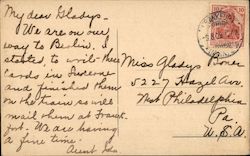 My dear Gladys-
We are on our
way to Berlin. I
started to write these
cards in
and finished them
on the train so will
mail them at Frank-
fort. We are having
a fine time.
Aunt
Miss Gladys
5227 Hazel Ave.
West Philadelphia
Pa.
U.S.A